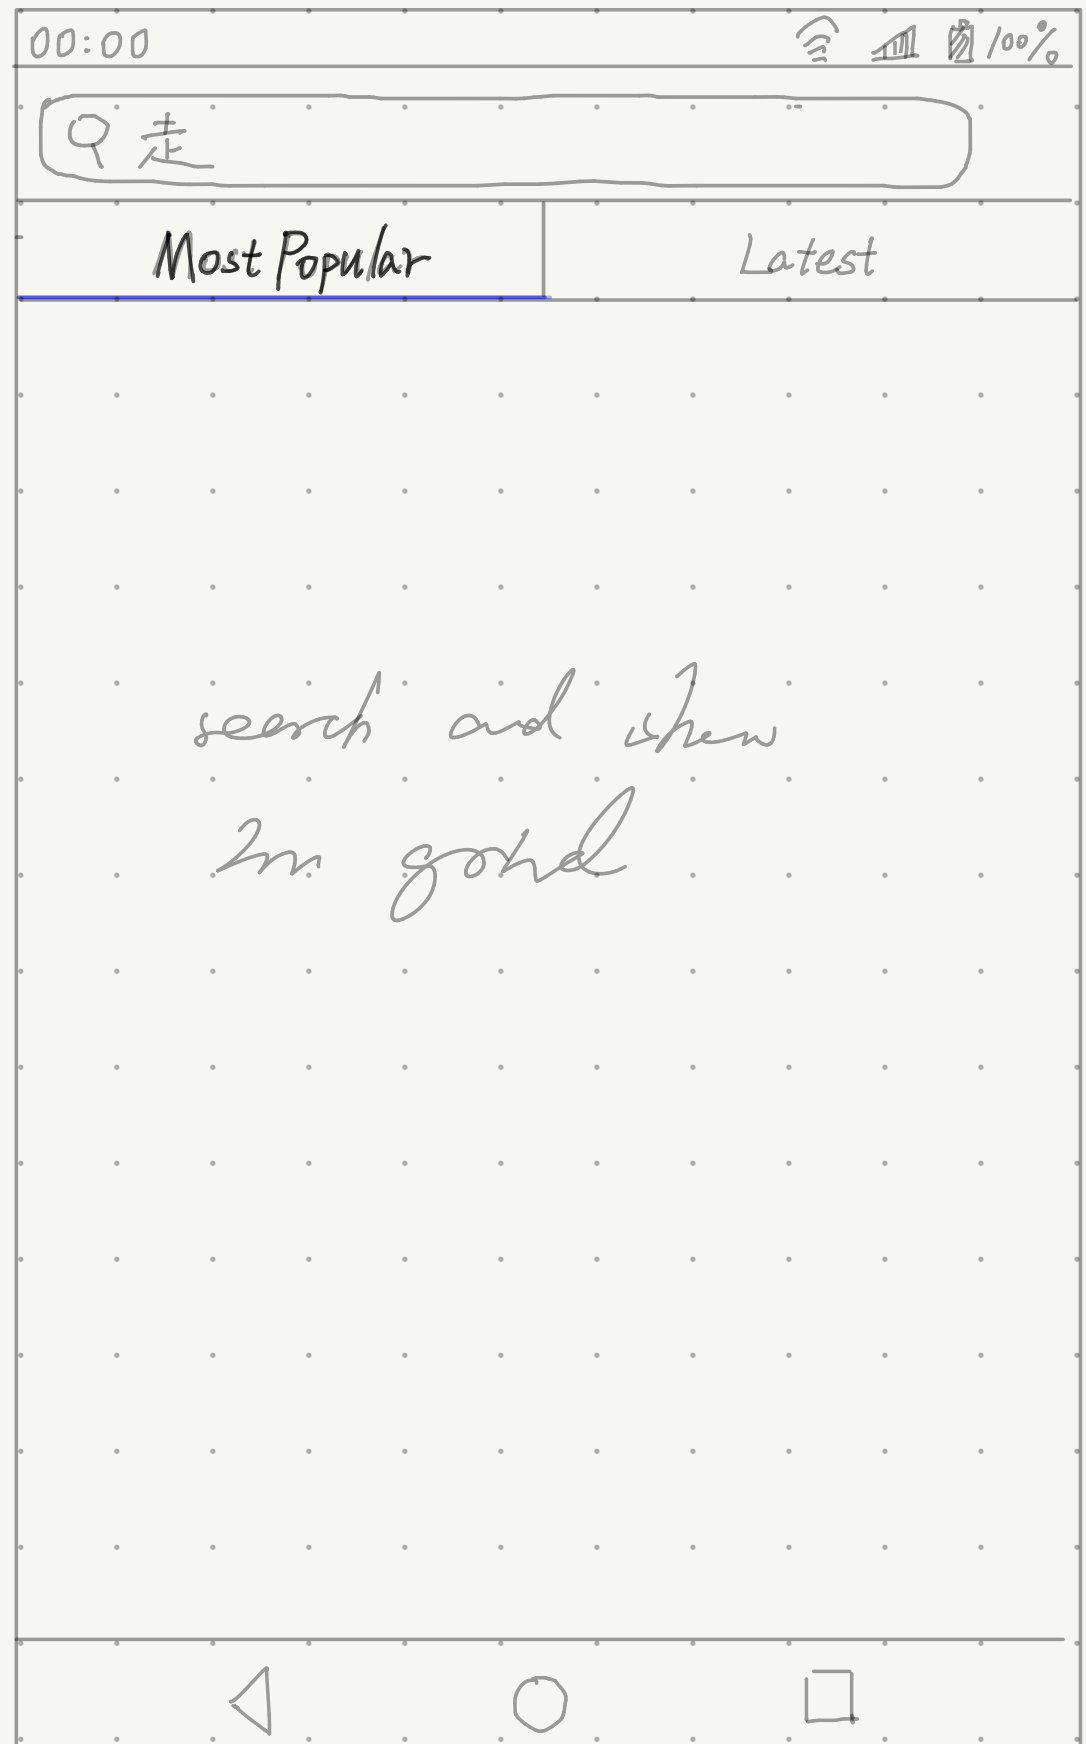 00:00 100%
走
Most Popular Latest
search and show
in grid